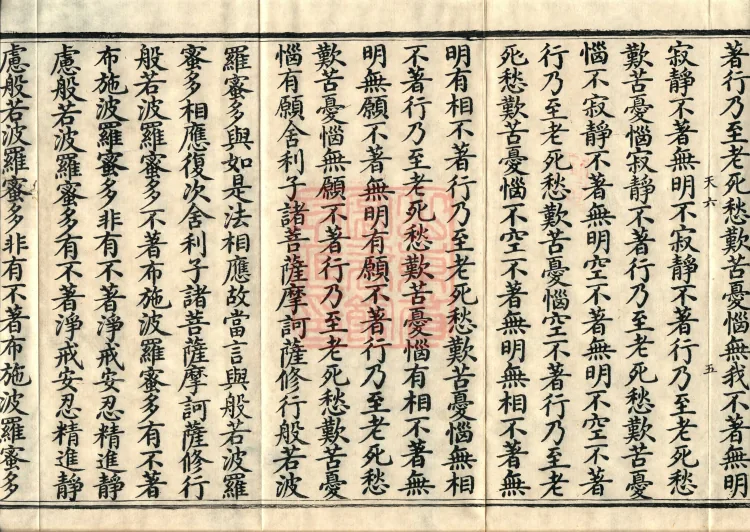 著行乃至老死愁歎苦憂惱無我不著無明
寂靜不著無明不寂靜不著行乃至老死愁
天六
五
歎苦憂惱寂靜不著行乃至老死愁歎苦憂
惱不寂靜不著無明空不著無明不空不著
行乃至老死愁歎苦憂惱空不著行乃至老
死愁歎苦憂惱不空不著無明無相不著無
明有相不著行乃至老死愁歎苦憂惱無相
不著行乃至老死愁歎苦憂惱有相不著無
明無願不著無明有願不著行乃至老死愁
歎苦憂惱無願不著行乃至老死愁歎苦憂
惱有願舍利子諸菩薩摩訶薩修行般若波
羅蜜多與如是法相應故當言與般若波羅
蜜多相應復次舍利子諸菩薩摩訶薩修行
般若波羅蜜多不著布施波羅蜜多有不著
布施波羅蜜多非有不著淨戒安忍精進靜
慮般若波羅蜜多有不著淨戒安忍精進靜
慮般若波羅蜜多非有不著布施波羅蜜多